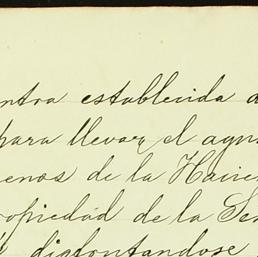 ntra establecida a
para llevar el agu
enos de la Hacien
ropiedad de la Se
disfontandose